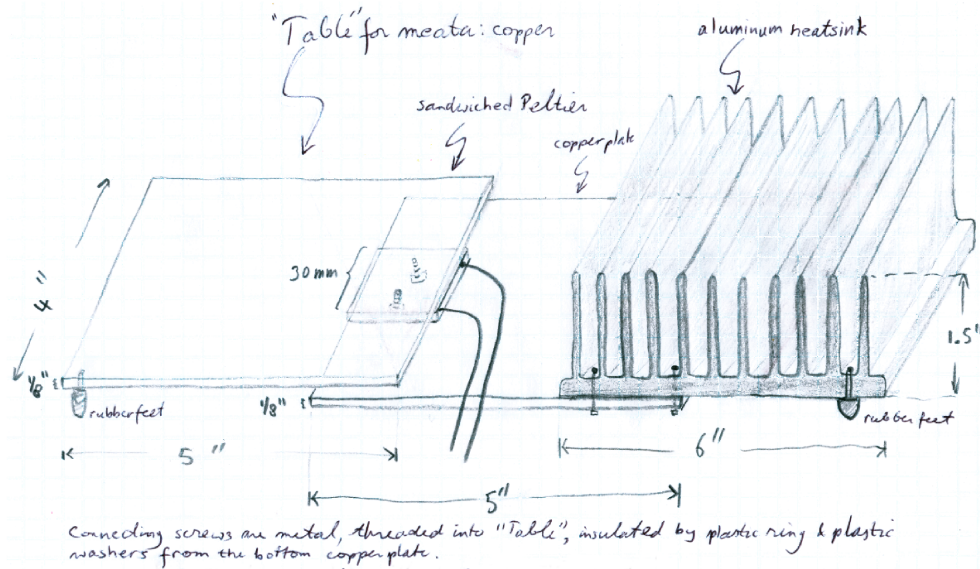 "Table" for meata: copper
aluminum heatsink
sandwiched Peltier
copper plate
30 mm
4"
1/8"
rubber feet
1/8"
1.5"
rubber feet
5"
6"
5"
Connecting screws are metal, threaded into "Table", insulated by plastic ring & plastic
washers from the bottom copper plate.